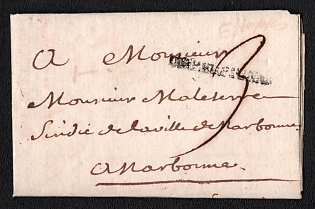 A Monsieur
3
Monsieur Maleterre
Sindic de la ville de Narbonne
A Narbonne